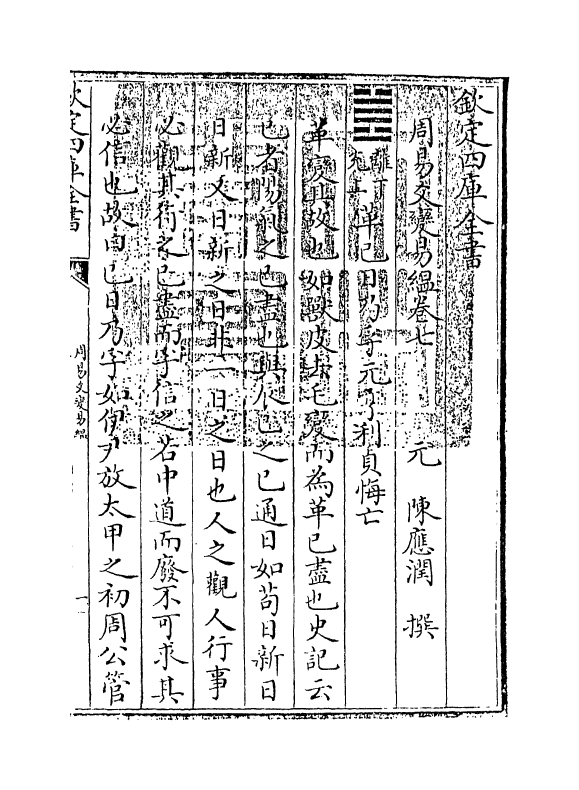 欽定四庫全書
周易爻變易縕卷七　元　陳應潤　撰
離下
兌上
革已日乃孚元亨利貞悔亡
革變其故也如獸皮去毛變而為革已盡也史記云
已者陽氣之已盡也與人已之已通日如茍日新日
日新又日新之日非一日之日也人之觀人行事
必觀其行之已盡而孚信之若中道而廢不可求其
必信也故曰已日乃孚如伊尹放太甲之初周公管
欽定四庫全書
周易爻變易縕
一